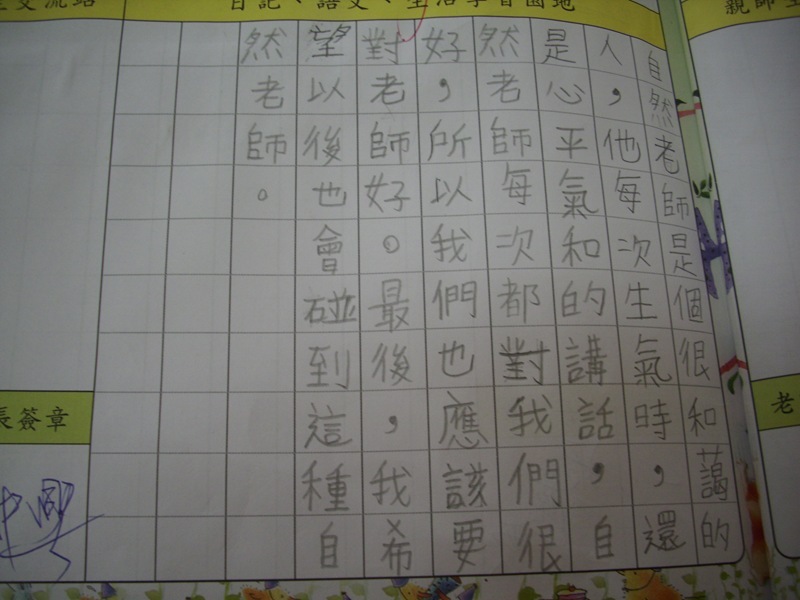 日記、語文、生活學習園地
自然老師是個很和藹的
人，他每次生氣時，還
是心平氣和的講話，自
然老師每次都對我們很
好，所以我們也應該要
對老師好。最後，我希
望以後也會碰到這種自
然老師。
交流站
長簽章
親師生
老